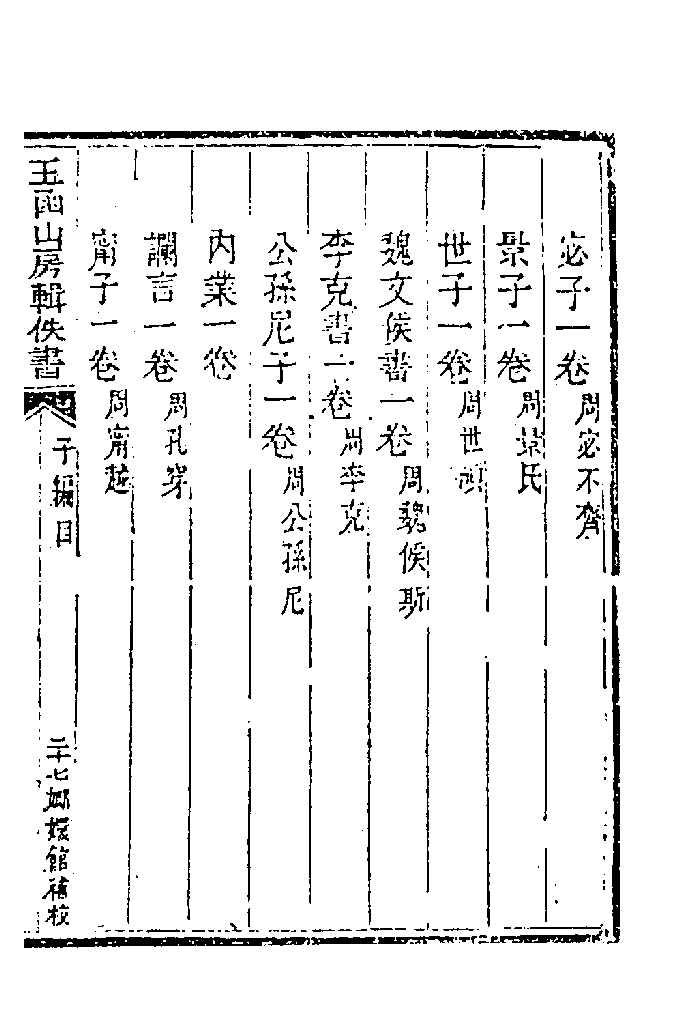 宓子一卷周宓不齊
景子一卷周景氏
世子一卷周世碩
魏文侯書一卷周魏侯斯
李克書一卷周李克
公孫尼子一卷周公孫尼
內業一卷
讕言一卷周孔穿
甯子一卷周甯越
玉函山房輯佚書
子編目
二十七嫏嬛館補校